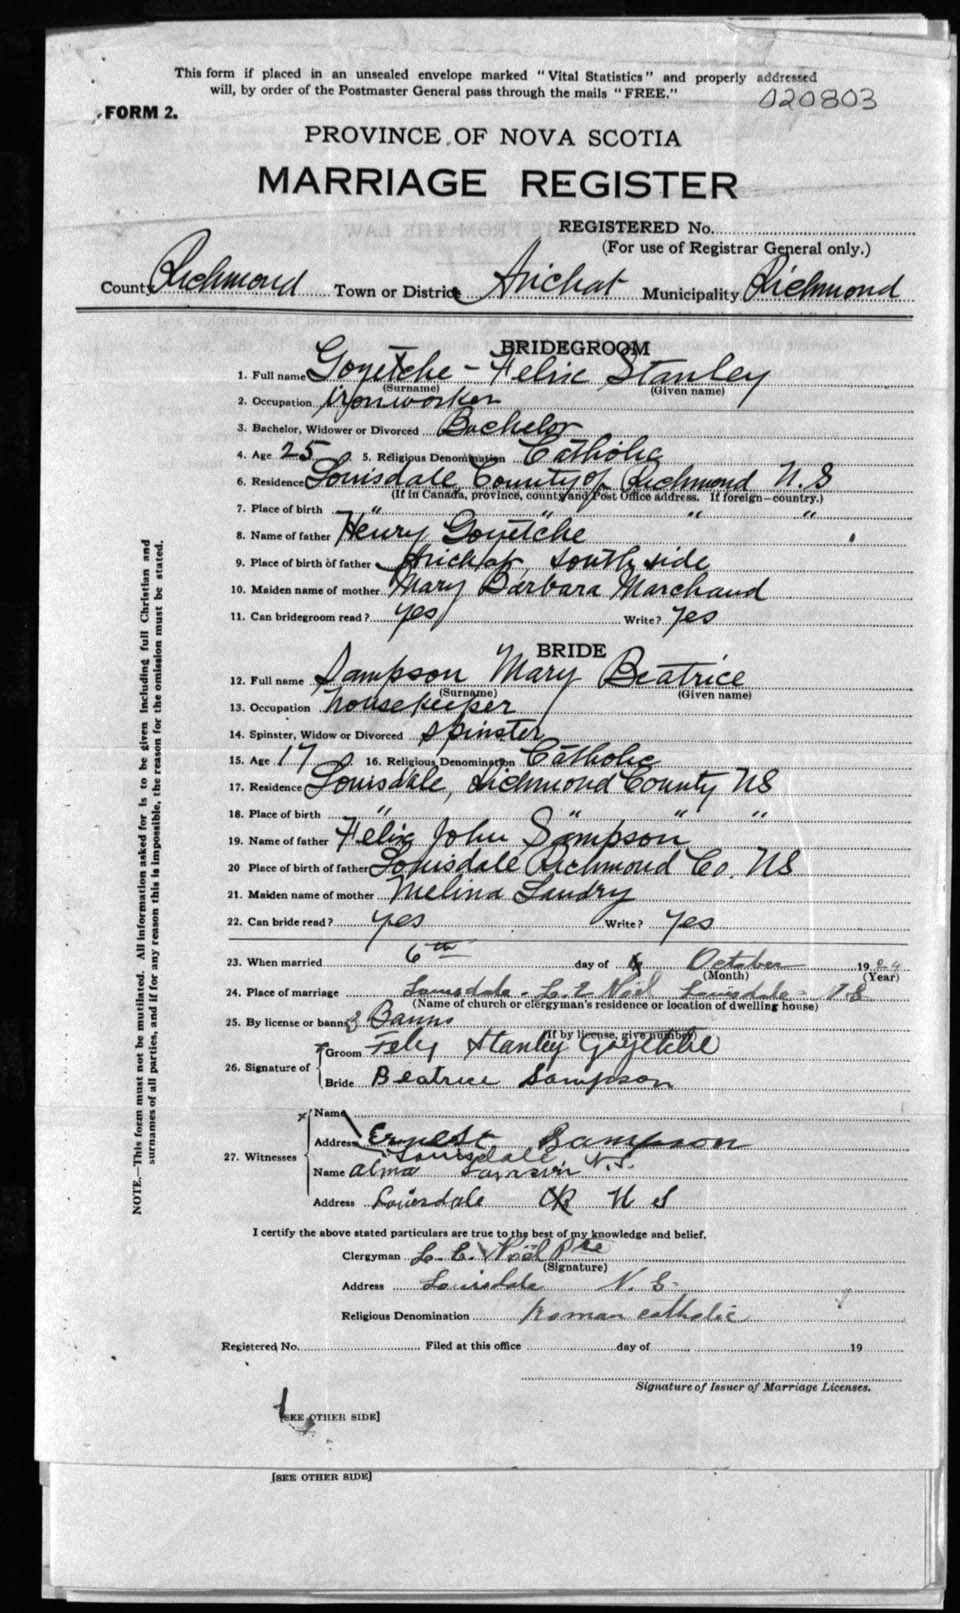 This form if placed in an unsealed envelope marked "Vital Statistics" and properly addressed
will, by order of the Postmaster General pass through the mails "FREE."
020803
FORM 2.
PROVINCE OF NOVA SCOTIA
MARRIAGE REGISTER
REGISTERED No.
(For use of Registrar General only.)
County Richmond Town or District Arichat Municipality Richmond
BRIDEGROOM
1. Full name Goyetche - Felix Stanley
(Surname) (Given name)
2. Occupation ironworker
3. Bachelor, Widower or Divorced Bachelor
4. Age 25 5. Religious Denomination Catholic
6. Residence Louisdale County of Richmond N.S
(If in Canada, province, county and Post Office address. If foreign—country.)
7. Place of birth " " " "
8. Name of father Henry Goyetche
9. Place of birth of father Arichat, south side
10. Maiden name of mother Mary Barbara Marchand
11. Can bridegroom read? yes Write? yes
BRIDE
12. Full name Sampson Mary Beatrice
(Surname) (Given name)
13. Occupation housekeeper
14. Spinster, Widow or Divorced spinster
15. Age 17 16. Religious Denomination Catholic
17. Residence Louisdale, Richmond County NS
18. Place of birth " " " "
19. Name of father Félix John Sampson
20 Place of birth of father Louisdale Richmond Co. NS
21. Maiden name of mother Melina Landry
22. Can bride read? yes Write? yes
23. When married 6th day of October 1924
(Month) (Year)
24. Place of marriage Louisdale - L. E Noël Louisdale - N S
(Name of church or clergyman's residence or location of dwelling house)
25. By license or banns 3 Banns
(If by license, give number)
26. Signature of Groom Felix Stanley Goyetche
Bride Beatrice Sampson
27. Witnesses Name
Address Ernest Sampson
Louisdale N.S.
Name alma Sampson
Address Louisdale N S
I certify the above stated particulars are true to the best of my knowledge and belief.
Clergyman L. E. Noël Ptre
(Signature)
Address Louisdale N. S.
Religious Denomination Roman catholic
Registered No. Filed at this office day of 19
Signature of Issuer of Marriage Licenses.
[SEE OTHER SIDE]
[SEE OTHER SIDE]
NOTE.—This form must not be mutilated. All information asked for is to be given including full Christian and
surnames of all parties, and if for any reason this is impossible, the reason for the omission must be stated.